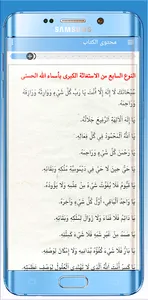 SAMSUNG
محتوى الكتاب
النوع السابع من الاستغاثة الكبرى بأسماء الله الحسنى
سُبْحَانَكَ لَا إِلَهَ إِلَّا أَنْتَ يَا رَبَّ كُلِّ شَيْءٍ وَوَارِثَهُ وَرَازِقَهُ
وَرَاحِمَهُ.
يَا إِلَهَ الْآلِهَةِ الرَّفِيعُ جَلَالُهُ.
يَا اللَّهُ الْمَحْمُودُ فِي كُلِّ فِعَالِهِ.
يَا رَحْمَنَ كُلِّ شَيْءٍ وَرَاحِمَهُ.
يَا حَيُّ حِينَ لَا حَيَّ فِي دَيْمُومِيَّةِ مُلْكِهِ وَبَقَائِهِ.
يَا قَيُّومُ فَلَا يَفُوتُ شَيْءٌ مِنْ عِلْمِهِ وَلَا يَؤُودُهُ.
يَا وَاحِدُ الْبَاقِي، أَوَّلَ كُلِّ شَيْءٍ وَآخِرَهُ.
يَا دَائِمُ فَلَا فَنَاءَ وَلَا زَوَالَ لِمُلْكِهِ وَبَقَائِهِ.
يَا صَمَدُ مِنْ غَيْرِ شَبِيهٍ فَلَا شَيْءَ كَمِثْلِهِ.
يَا بَارُّ فَلَا شَيْءَ كُفُؤُهُ يُدَانِيهِ وَلَا إِمْكَانَ لِوَصْفِهِ.
يَا كَبِيرُ أَنْتَ الَّذِي لَا تَهْتَدِي الْعُقُولُ لِوَصْفِ عَظَمَتِهِ